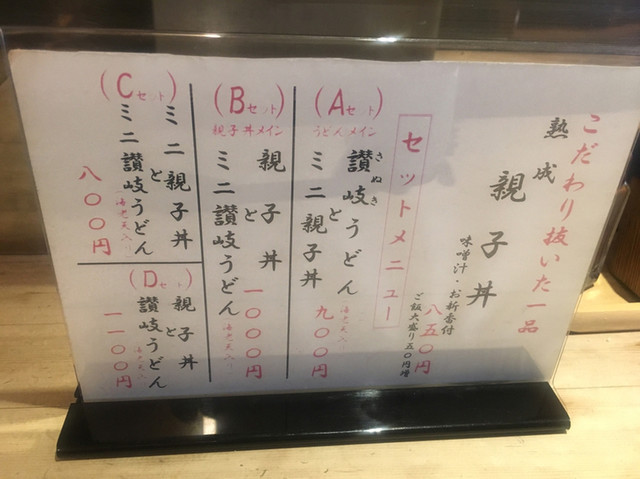 こだわり抜いた一品
熟成
親子丼
味噌汁・お新香付
八五〇円
ご飯大盛り五〇円増
セットメニュー
(Aセット)
うどんメイン
讃岐うどん
さぬき
と
ミニ親子丼
海老天入り
九〇〇円
(Bセット)
親子丼メイン
親子丼
と
ミニ讃岐うどん
海老天入り
一〇〇〇円
(Cセット)
ミニ親子丼
と
ミニ讃岐うどん
海老天入り
八〇〇円
(Dセット)
親子丼
と
讃岐うどん
海老天入り
一一〇〇円